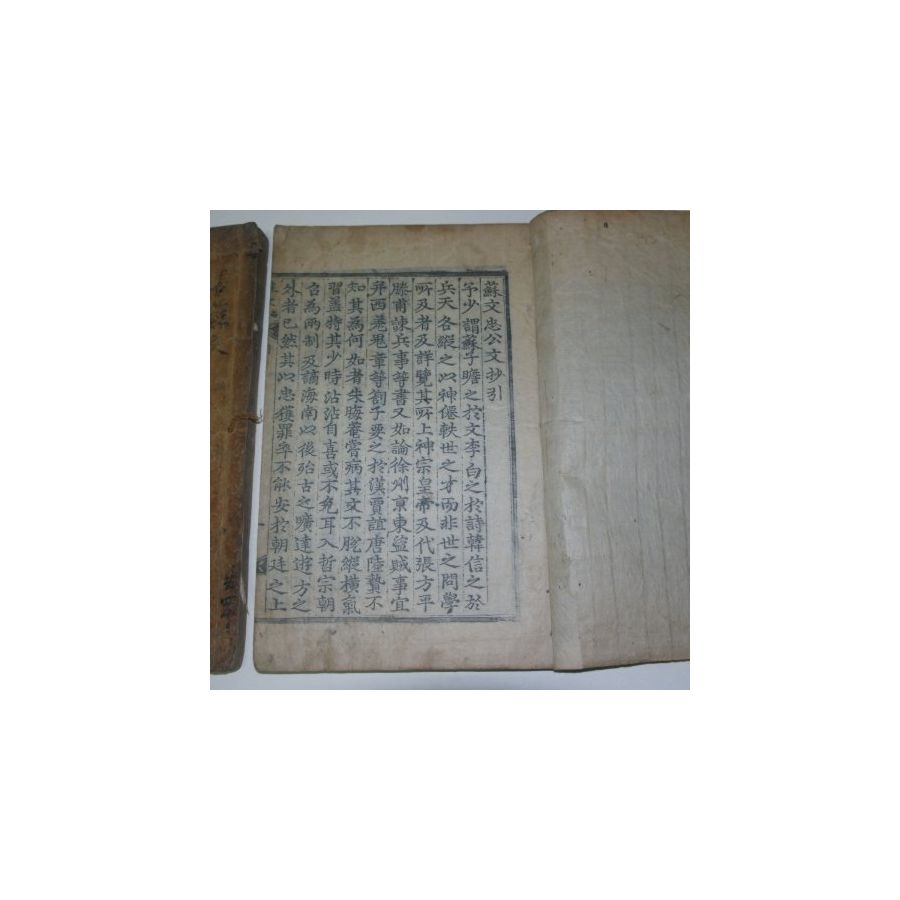 蘇文忠公文抄引
予少謂蘇子瞻之於文李白之於詩韓信之於
兵天各縱之以神僊軼世之才而非世之問學
所及者及詳覽其所上神宗皇帝及代張方平
滕甫諫兵事等書又如論徐州京東盜賊事宜
并西羌鬼章等劄子要之於漢賈誼唐陸贄不
知其為何如者朱晦菴嘗病其文不脫縱橫氣
習盖特其少時沾沾自喜或不免耳入哲宗朝
召為兩制及謫海南以後殆古之曠達遊方之
外者已然其以忠獲罪卒不能安於朝廷之上